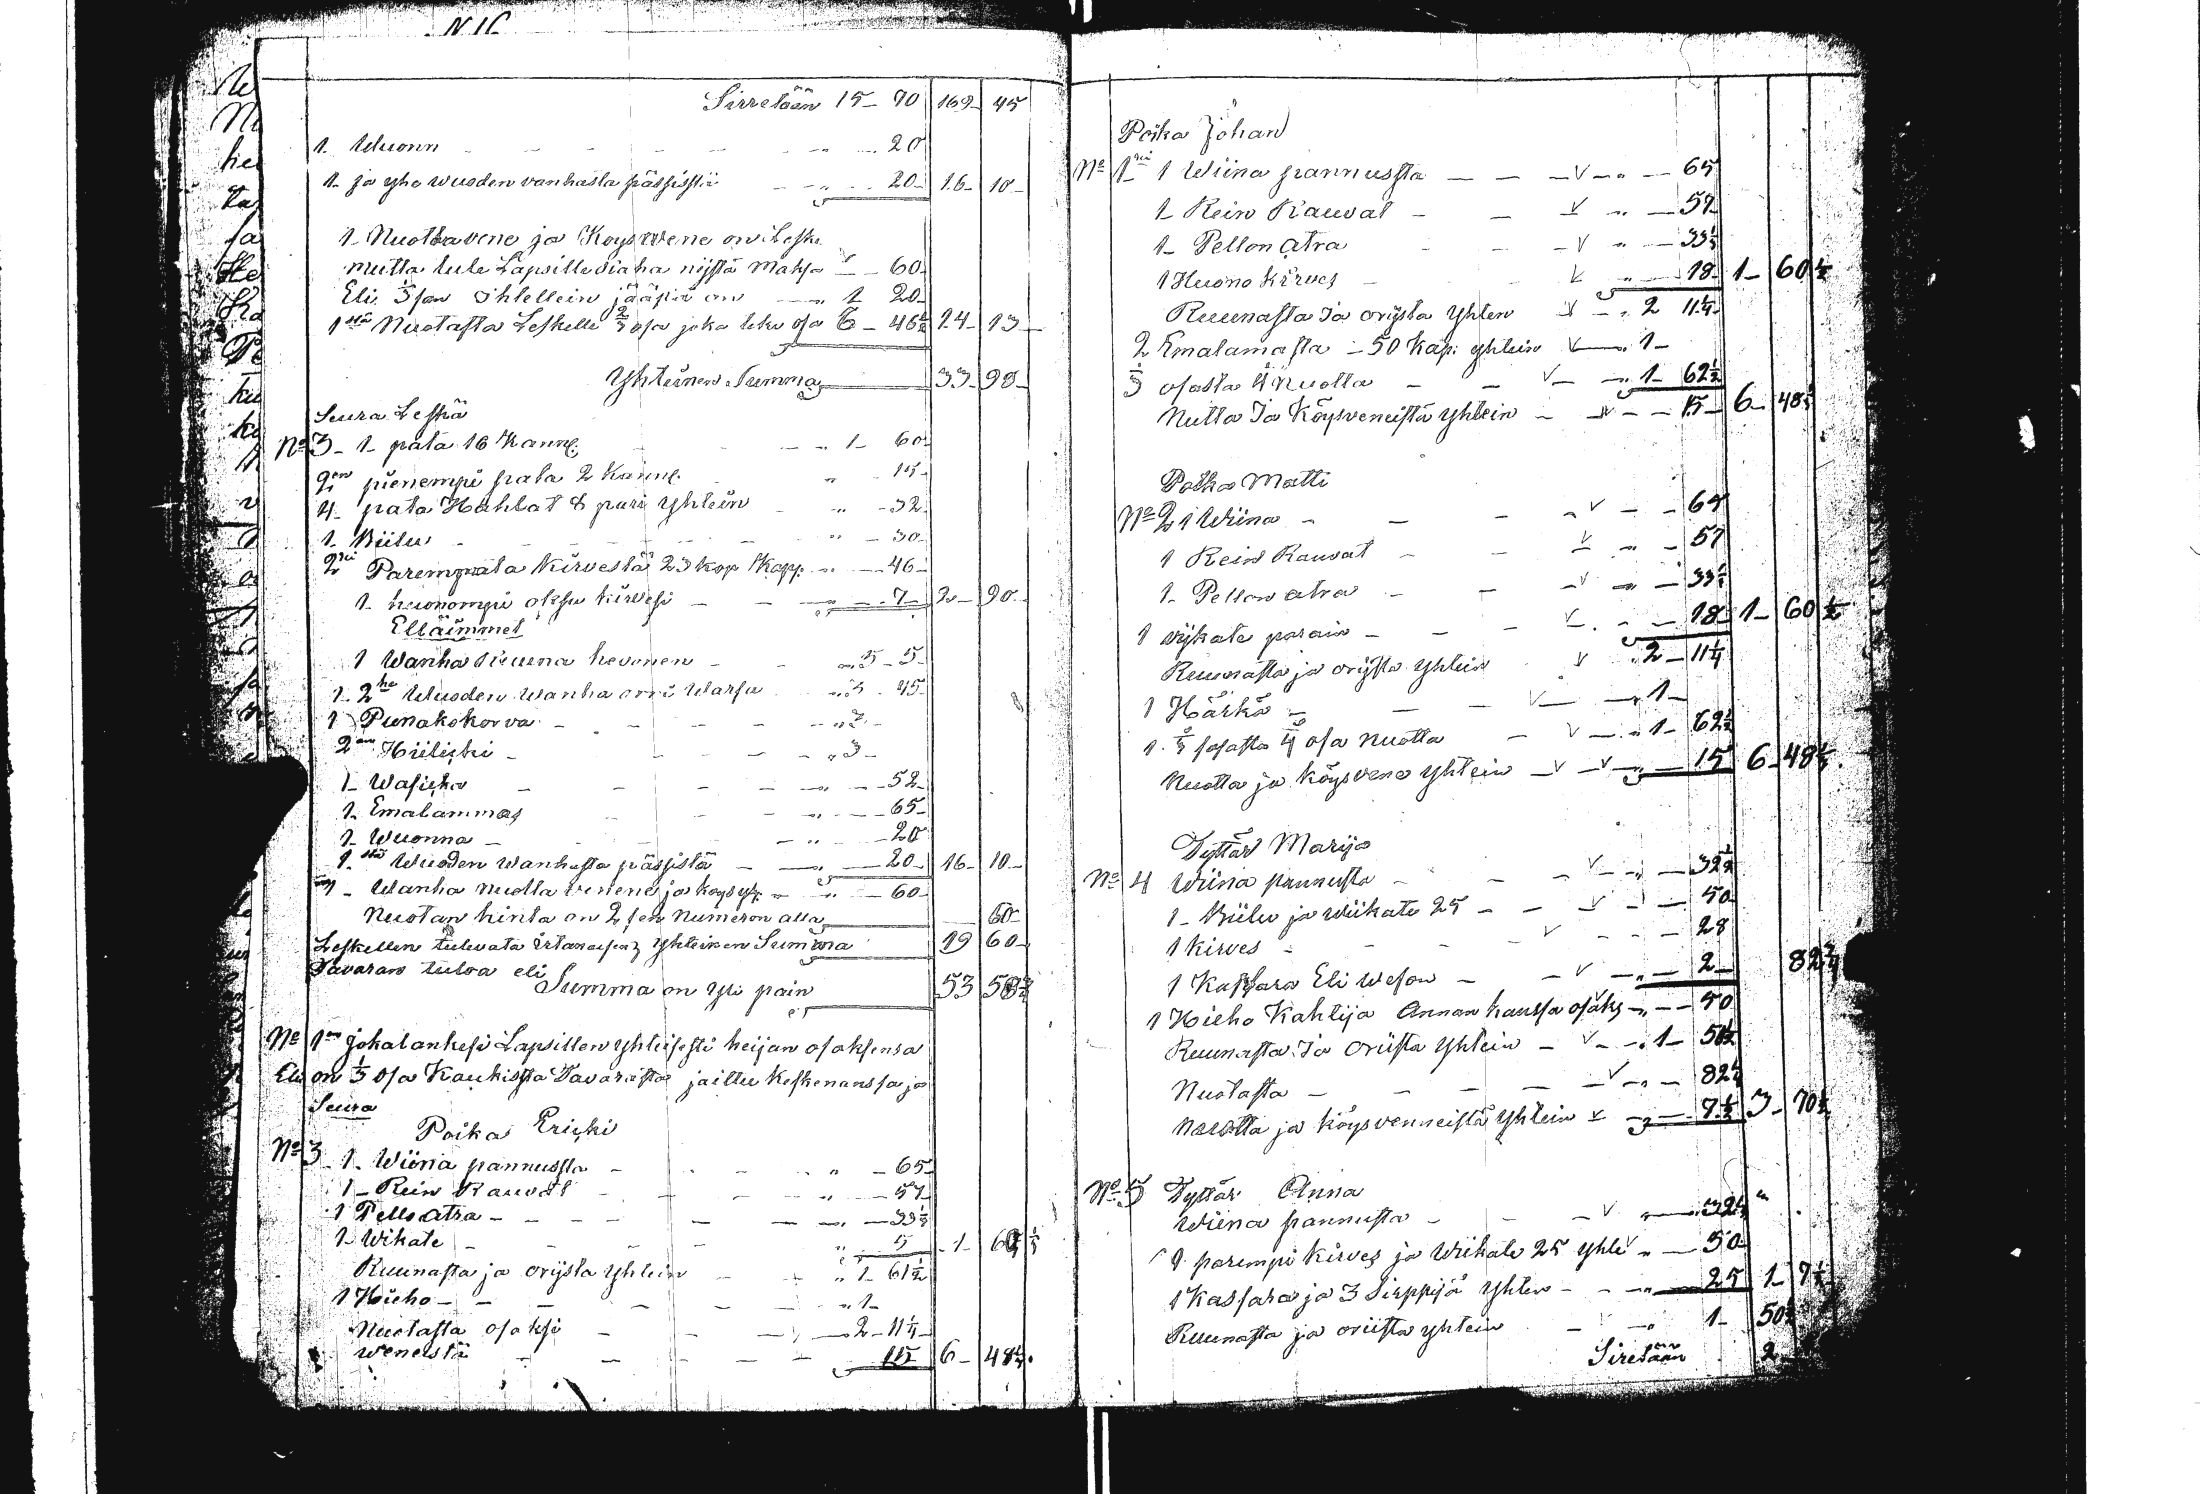 N 16
Sirretään 15 - 70 169 - 45
1 Wuonn - - - 20
1 ja yhe wuoden vanhasta pässistä - - 20 - 16 - 10 -
1 Nuottavene ja Köysvene on Leske
mutta tule Lapsille siaha nijstä maksa - 60
Eli 1/3 san jääpiä on - - 1 20 -
1 stä Nuotasta Leskelle 2/3 osa joka teke osa 6 - 46 1/2 14 - 13 -
Yhteinen Summa 33 - 93 -
Seura Leskiä
No 3 - 1 - pata 16 Kann: - - 1 - 60
2 en pienempi pata 2 Kann: - 15 -
4 - pata Hahlat & pari yhtein - - 32
1 - Biilu - - - 30 -
2 xi Parempata Kirvestä 23 kop Kapp: - - 46 -
1 - huonompi oksu kirvesi - - 7 - 2 - 90 -
Elläimmet
1 Wanha Ruuna hevonen - - 5 - 5 -
1 - 2 he Wuoden wanha orri Warsa - 3 - 45 -
1 Punakokorva - - - 7 -
2 en Hiilicki - - - 3 -
1 - Wasicka - - - 52 -
1 - Emalammas - - 65 -
1 - Wuonna - - 20
1 stä Wuoden wanhasta pässistä - - 20 - 16 - 10 -
Wanha nuotta venene ja köysyh: - - 60 -
Nuotan hinta on 2 sen Numeron alla 60 -
Leskellen tulevata yhteinen Summa 19 60 -
Tavaran tuloa eli
Summa on yli pain 53 53 3/4
No 1 en jokalankesi Lapsillen yhteisesti heijan osaksensa
Eli on 1/3 osa Kaikista Tavarasta jaittu keskenanssa ja
Seura
Poika Ericki
No 3 1 - Wiina pannussta - - 65 -
1 - Rein Rauvat - - 57
1 Pello atra - - - 33 1/2
1 - Wikate - - - 5 - 1 - 60 1/2
Ruunasta ja orijsta yhtein - - 1 - 61 1/2
1 Hieho - - - 1 -
Nuotasta osaksi - - 2 - 11 1/4 -
weneistä - - - 15 6 - 48 1/4
Poika Johan
No 1 xi 1 Wiina pannussta - - v - - 65
1 Rein Rauvat - - v - 57
1 - Pellon atra - v - 33 1/2
1 Huono Kirves - v - 18 - 1 - 60 1/2
Ruunasta ja orijsta yhten v - 2 11 1/4
2 Emalamasta - 50 Kap: yhtein v - 1 -
1/3 osasta 4 nuotta - - v - 1 - 62 1/2
Nutta ja Köysveneistä yhtein - v - - 15 - 6 - 48 1/4
Poika Matti
No 2 1 Wiina - - - v - - 65
1 Rein Rauvat - - v - - 57
1 - Pellon atra - - v - - 33 1/2
1 vijkate parain - - - v - - 18 1 - 60 1/2
Ruunasta ja orijsta yhtein v 2 - 11 1/4
1 Härkä - - - v - 1 -
1 1/3 sosasta 1/4 osa nuotta - v - 1 - 62 1/2
Nuotta ja köysvene yhtein - v - v - 15 6 - 48 1/4
Tyttär Marija
No 4 Wiina pannusta - - - v - - 32 1/2
1 - Biilu ja wiikate 25 - - v - - 50
1 Kirves - - - v - - 28
1 Kassara Eli weson - - v - 2 - 82 3/4
1 Hieho Kahtija Annan kanssa osaks - - 50
Ruunasta ja oriista yhtein - v - 1 - 50 1/2
Nuotasta - - - - v - 82 1/2
Nuotta ja köysvenneistä yhtein v - 7 1/2 3 - 70 1/2
No 5 Tyttär Anna
Wiina pannusta - - - v - 32 1/2
1 parempi kirves ja Wiikate 25 yhte v - 50
1 Kassara ja 3 Sirppijä yhten - - 25 1 - 7 1/2
Ruunasta ja oriista yhtein - v - 1 - 50 1/2
Siretään 2